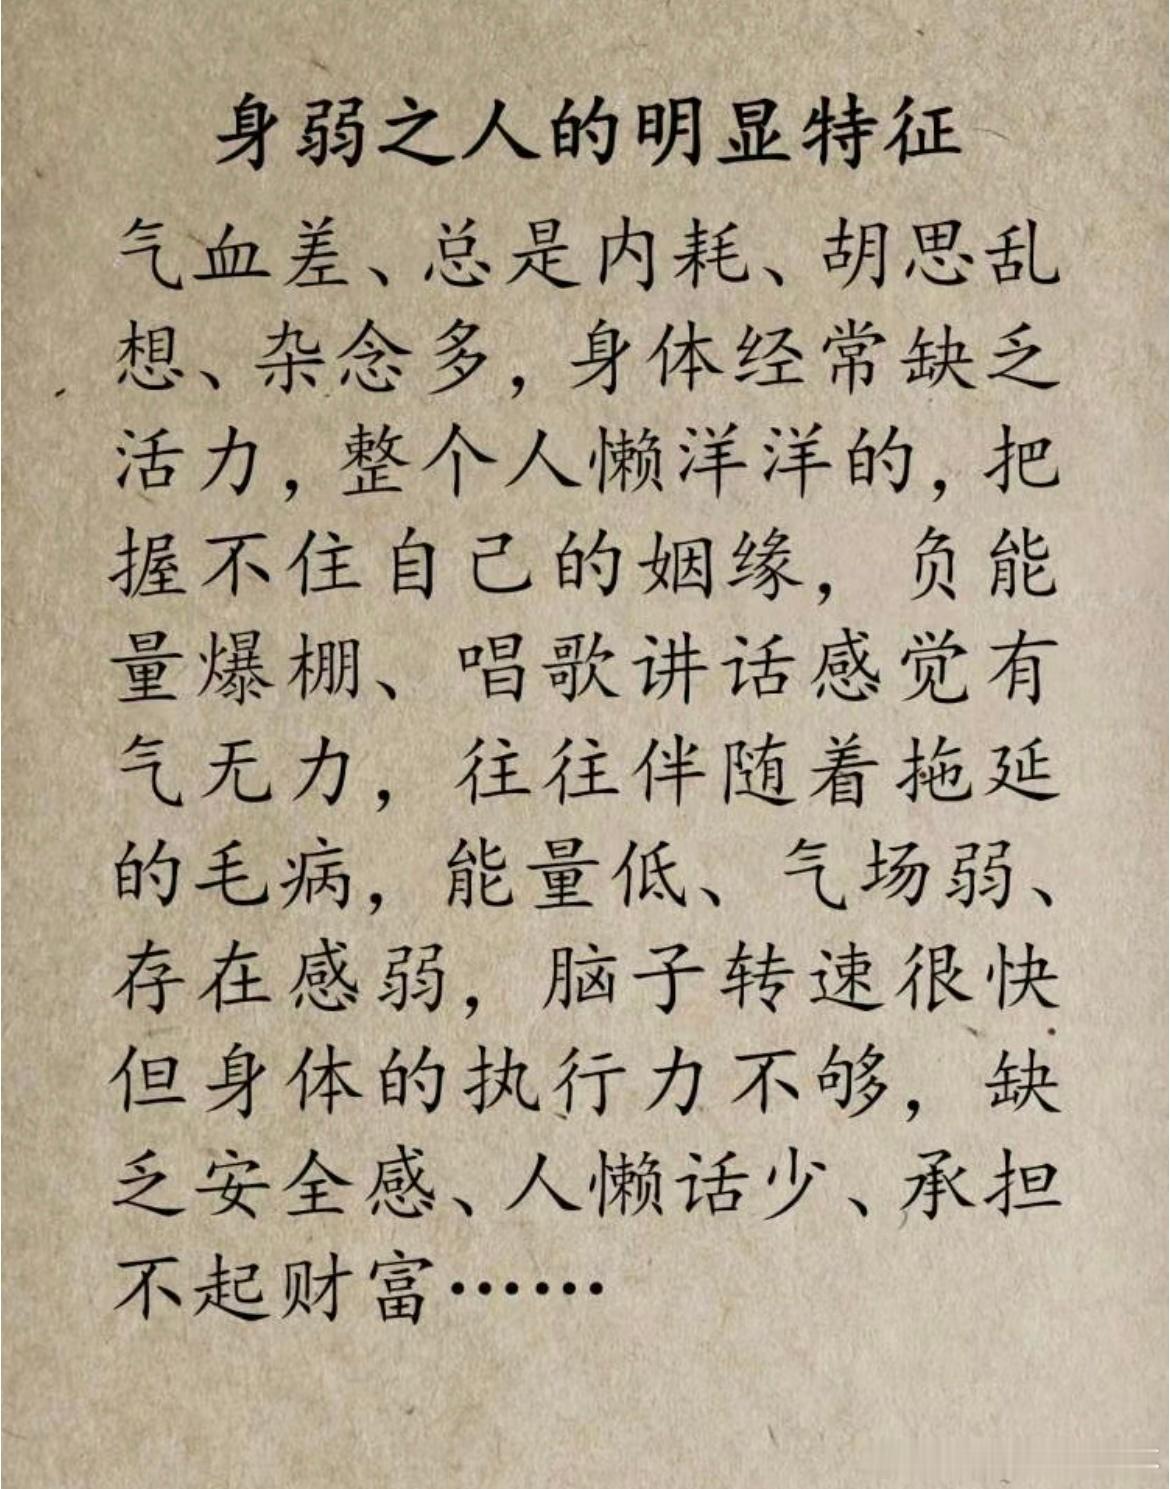 身弱之人的明显特征
气血差、总是内耗、胡思乱
想、杂念多，身体经常缺乏
活力，整个人懒洋洋的，把
握不住自己的姻缘，负能
量爆棚、唱歌讲话感觉有
气无力，往往伴随着拖延
的毛病，能量低、气场弱、
存在感弱，脑子转速很快
但身体的执行力不够，缺
乏安全感、人懒话少、承担
不起财富……